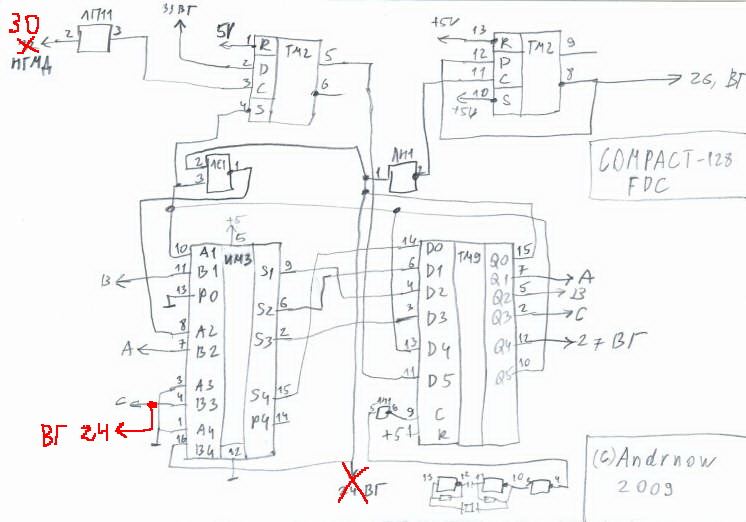 30
НГМД
2
ЛП11
3
33 ВГ
5V
1 R
2 D
3 C
4 S
ТМ2
5
6
+5V
13 R
12 D
11 C
10 S
+5V
ТМ2
9
8
26, ВГ
COMPACT-128
FDC
2
3
ЛЕ1
1
1
ЛН1
2
+5
5
ИМ3
10 A1
11 B1
13 P0
8 A2
7 B2
3 A3
4 B3
1 A4
16 B4
12
B
A
C
ВГ 24
S1 9
S2 6
S3 2
S4 15
P4 14
24 ВГ
ТМ9
14 D0
6 D1
4 D2
3 D3
13 D4
11 D5
9 C
+5 1 R
5
6
Q0 15
Q1 7
Q2 5
Q3 2
Q4 12
Q5 10
A
B
C
27 ВГ
13
12
11
10
3
4
(c) Andrnow
2009